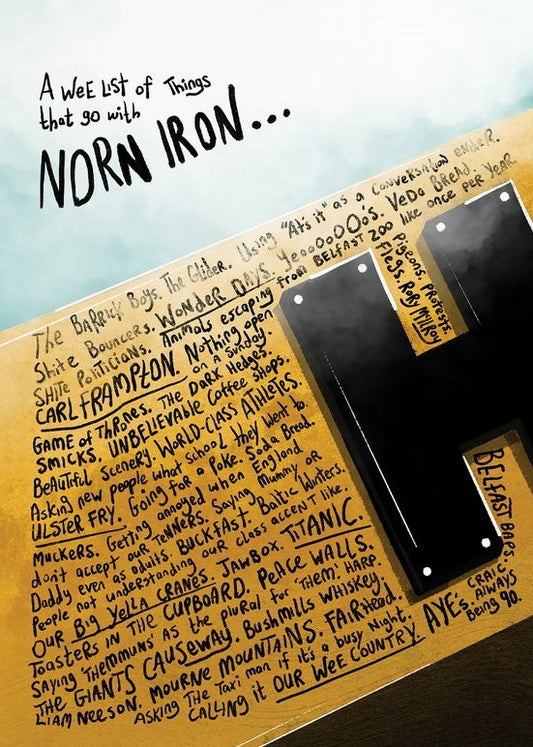 A Wee List of Things
that go with
NORN IRON...
The Barrick Boys. The Glider. Using "Ats it" as a conversation ender.
Shite Bouncers. Wonder Days. Yeoooooo's. Veda Bread.
Shite Politicians. Animals escaping from Belfast Zoo like once per year
CARL FRAMPTON. Nothing open on a Sunday.
Pigeons. Protests.
Flegs. Rory McIlroy
Game of Thrones. The Dark Hedges.
Smicks. Unbelievable Coffee shops.
Beautiful Scenery. World-Class Athletes.
Asking new people what school they went to.
ULSTER FRY. Going for a Poke. Soda Bread.
Muckers. Getting annoyed when England
don't accept our Tenners. Saying Mummy or
Daddy even as adults. Buckfast. Baltic Winters.
People not understanding our class accent like.
Our Big Yella Cranes. Jawbox. TITANIC.
Toasters in the cupboard. Peace Walls.
Saying 'Themmuns' as the plural for 'Them'. Harp.
The Giants Causeway. Bushmills Whiskey.
Liam Neeson. Mourne Mountains. Fairhead.
Asking The Taxi man if it's a busy Night.
Calling it Our Wee Country
Belfast Baps.
Aye's. Craic.
Always
Being 90.
H